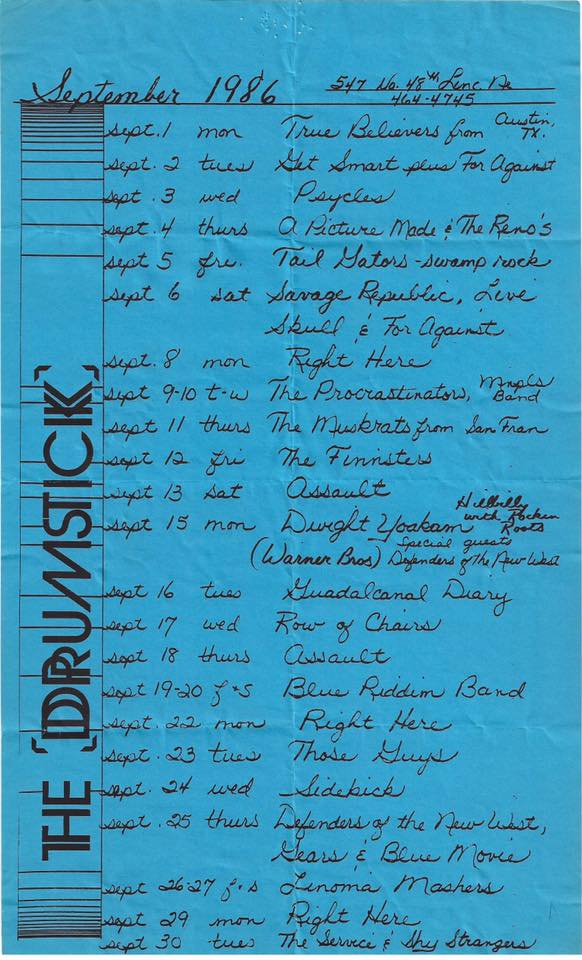 September 1986
547 No. 48th Linc. Ne
464-4745
THE [DRUMSTICK]
sept. 1 mon True Believers from Austin, TX.
sept. 2 tues Get Smart plus For Against
sept. 3 wed Psycles
sept. 4 thurs A Picture Made & The Reno's
sept 5 fri. Tail Gators - swamp rock
sept 6 sat Savage Republic, Live
Skull & For Against
sept. 8 mon Right Here
sept 9-10 t-w The Procrastinators, Mnpls Band
sept 11 thurs The Muskrats from San Fran
sept 12 fri The Finnsters
sept 13 sat Assault
sept 15 mon Dwight Yoakam Hillbilly with Rockin Roots
Special guests
(Warner Bros) Defenders of The New West
sept 16 tues Guadalcanal Diary
sept 17 wed Row of Chairs
sept 18 thurs Assault
sept 19-20 f + s Blue Riddim Band
sept. 22 mon Right Here
sept. 23 tues Those Guys
sept. 24 wed Sidekick
sept. 25 thurs Defenders of the New West,
Gears & Blue Movie
sept 26-27 f-s Linoma Mashers
sept 29 mon Right Here
sept 30 tues The Service & Shy Strangers